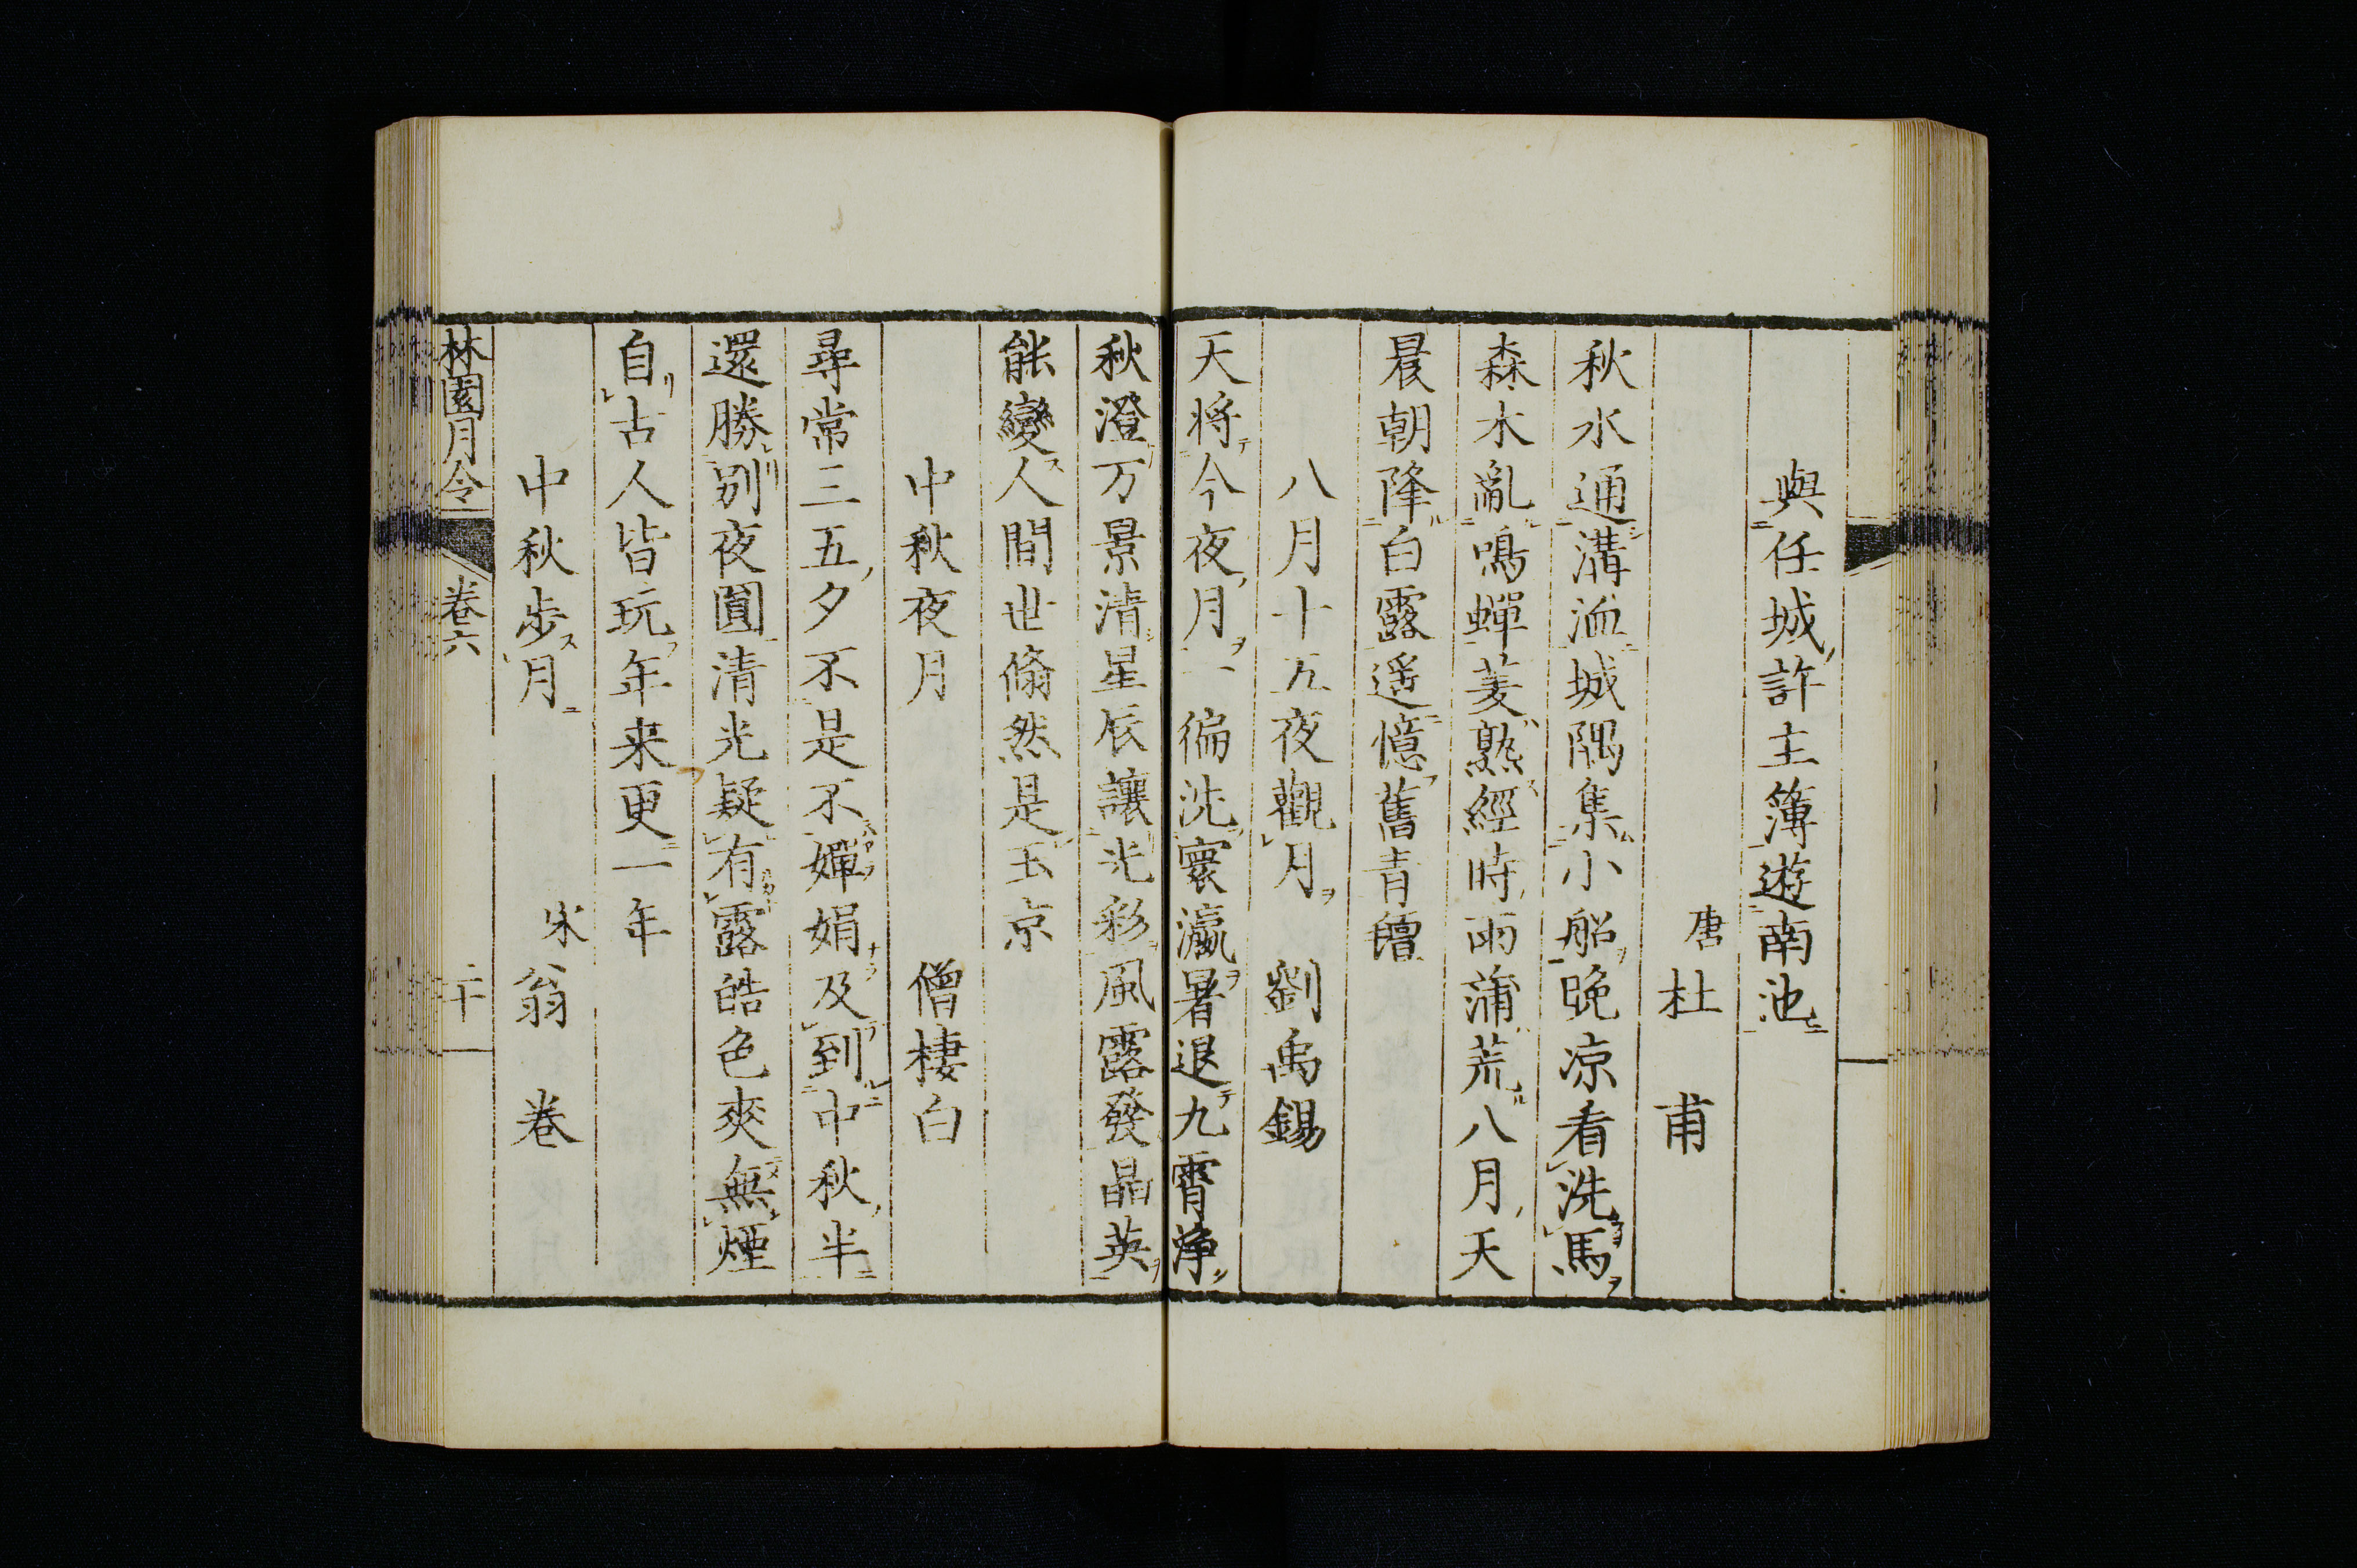 與任城許主簿遊南池
唐杜甫
秋水通溝洫城隅集小船晩凉看洗馬
森木亂鳴蟬菱熟經時雨蒲荒八月天
晨朝降白露遥憶舊青氊
八月十五夜觀月 劉禹錫
天將今夜月一徧洗寰瀛暑退九霄淨
秋澄万景清星辰讓光彩風露發晶英
能變人間世翛然是玉京
中秋夜月 僧棲白
尋常三五夕不是不嬋娟及到中秋半
還勝別夜圓清光疑有露皓色爽無煙
自古人皆玩年来更一年
中秋歩月 宋翁卷
林園月令 卷六 二十